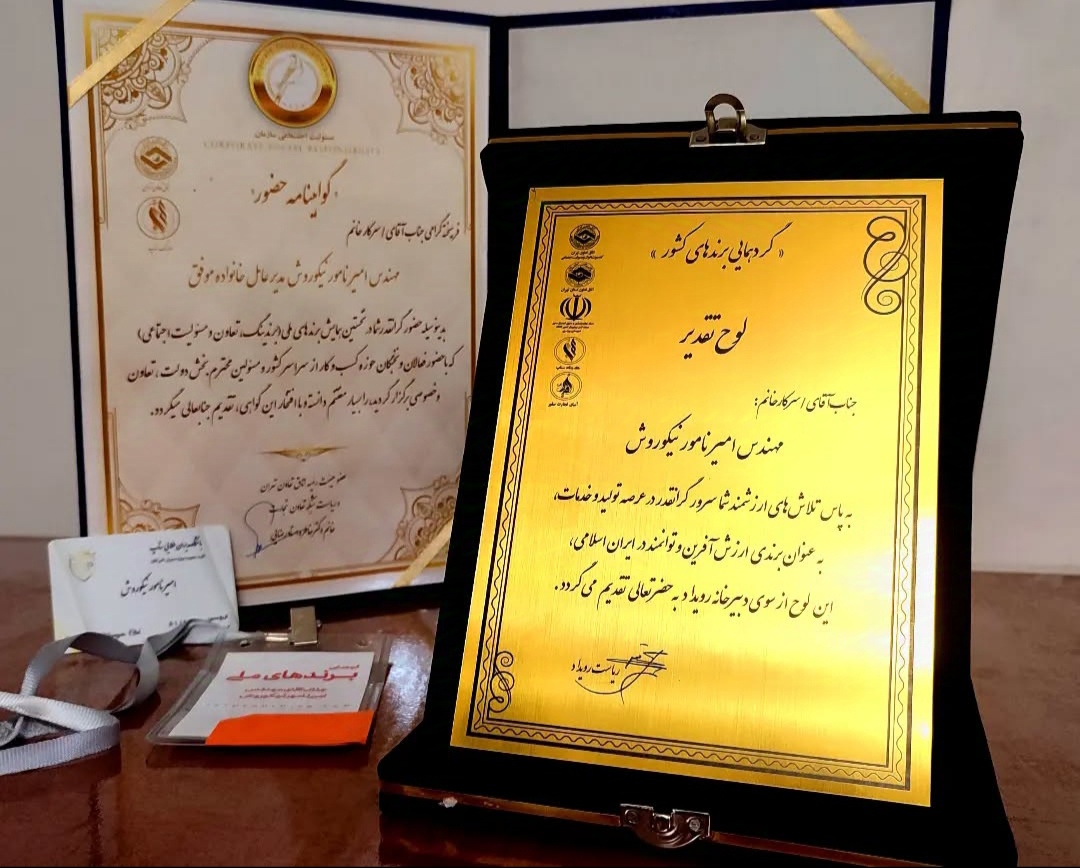 مسئولیت اجتماعی سازمان
CORPORATE SOCIAL RESPONSIBILITY
«گواهینامه حضور»
فریخته گرامی جناب آقای/سرکار خانم
مهندس امیر نامور نیکوروش مدیر عامل خانواده موفق
بدینوسیله حضور گرانقدر شما در نخستین همایش برندهای ملی (برندینگ، تعاون و مسئولیت اجتماعی)
که با حضور فعالان و نخبگان حوزه کسب و کار از سراسر کشور و مسئولین محترم بخش دولت، تعاون
و خصوصی برگزار گردید، را بسیار مغتنم دانسته و با افتخار این گواهی، تقدیم جنابعالی میگردد.
عضو هیئت رئیسه اتاق تعاون تهران
خانم دکتر
امیر نامور نیکوروش
برندهای ملی
جناب آقای مهندس
امیر نامور نیکوروش
« گردهمایی برندهای کشور »
لوح تقدیر
جناب آقای/سرکار خانم:
مهندس امیر نامور نیکوروش
به پاس تلاش های ارزشمند شما سرور گرانقدر در عرصه تولید و خدمات،
به عنوان برندی ارزش آفرین و توانمند در ایران اسلامی،
این لوح از سوی دبیرخانه رویداد به حضرتعالی تقدیم می گردد.
ریاست رویداد